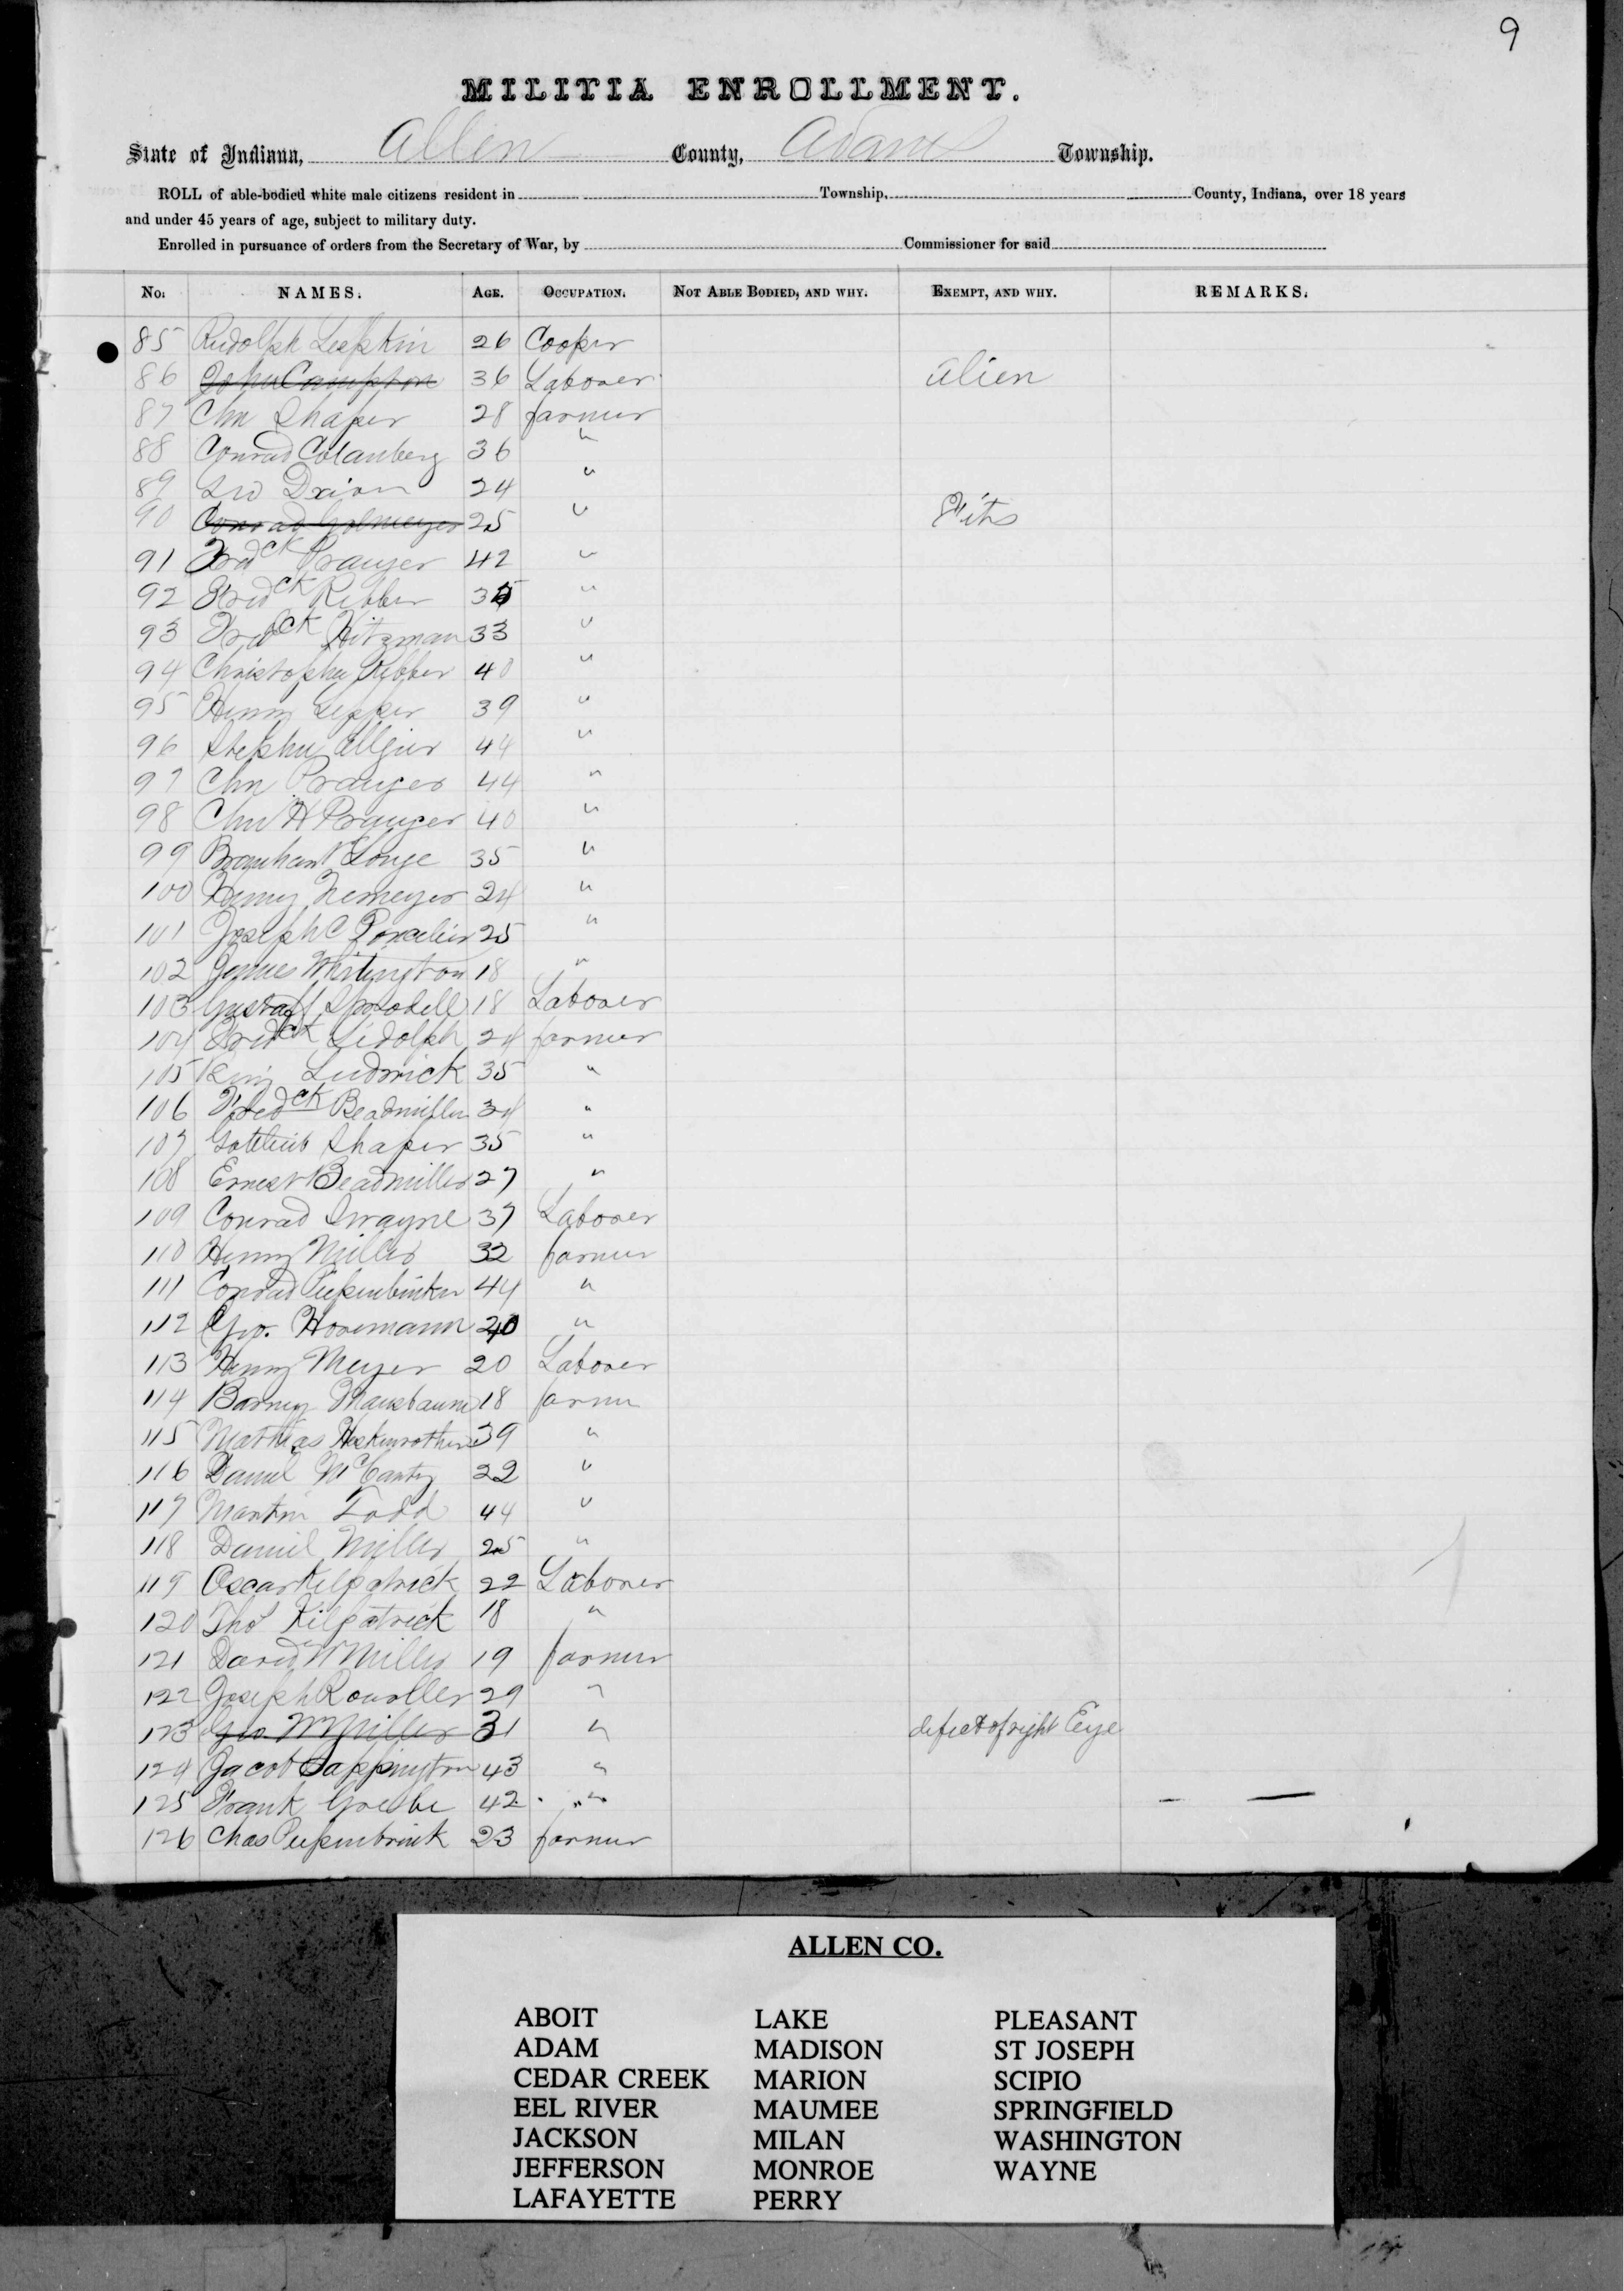 9
MILITIA ENROLLMENT.
State of Indiana, Allen County, Adams Township.
ROLL of able-bodied white male citizens resident in Township, County, Indiana, over 18 years
and under 45 years of age, subject to military duty.
Enrolled in pursuance of orders from the Secretary of War, by Commissioner for said
No. NAMES. AGE. OCCUPATION. NOT ABLE BODIED, AND WHY. EXEMPT, AND WHY. REMARKS.
85 Rudolph 26 Cooper
86 John Compton 36 Laborer alien
87 Chn Shaper 28 farmer
88 Conrad 36 "
89 24 "
90 Conrad 25 " Fits
91 Fredck Pranger 42 "
92 Fredck Ribber "
93 Fredck Hitzman 33 "
94 Christopher Ribber 40 "
95 Henry Lepper 39 "
96 Stephen 44 "
97 Chn Pranger 44 "
98 Chn H Pranger 40 "
99 35 "
100 Henry Nemeyer 24 "
101 Joseph C 25 "
102 James Whitington 18 "
103 Gustaff 18 Laborer
104 Fredck Lidolph 24 farmer
105 Ludwick 35 "
106 Fredck Beadmiller 34 "
107 Gotleib Shaper 35 "
108 Ernest Beadmiller 27 "
109 Conrad Swayne 37 Laborer
110 Henry Miller 32 farmer
111 Conrad 44 "
112 Geo. Horsmann "
113 Henry Meyer 20 Laborer
114 Barney 18 farmer
115 Mathias 39 "
116 Daniel McCarty 22 "
117 Martin Todd 44 "
118 Daniel Miller 25 "
119 Oscar Kilpatrick 22 Laborer
120 Thos Kilpatrick 18 "
121 David W Miller 19 farmer
122 Joseph Roualler 29 "
123 Geo. Wm Miller 31 " defect of right Eye
124 Jacob Sappington 43 "
125 Frank 42 "
126 Chas Piepenbrink 23 farmer
ALLEN CO.
ABOIT LAKE PLEASANT
ADAM MADISON ST JOSEPH
CEDAR CREEK MARION SCIPIO
EEL RIVER MAUMEE SPRINGFIELD
JACKSON MILAN WASHINGTON
JEFFERSON MONROE WAYNE
LAFAYETTE PERRY